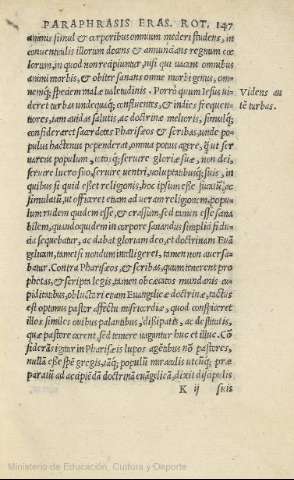 PARAPHRASIS ERAS. ROT. 147
animis simul & corporibus omnium mederi studens, in
conuenticulis illorum docens & annuncians regnum cœ
lorum, in quod non recipiuntur, nisi qui uacant omnibus
animi morbis, & obiter sanans omne morbi genus, om-
nemq; speciem malæ ualetudinis. Porrò quum Iesus ui-
deret turbas undequaq; confluentes, & indies frequen-
tiores, tam auidas salutis, ac doctrinæ melioris, simulq;
consideraret sacerdotes Phariseos & scribas, unde po
pulus hactenus pependerat, omnia potius agere, q̃ ut ser
uarent populum, totosq; seruire gloriæ suæ, non dei,
seruire lucro suo, seruire uentri, uoluptatibusq; suis, in
quibus si quid esset religionis, hoc ipsum esse
simulatũ, ut
rudem quidem esse, & crassum, sed tamen esse sana
bilem, quandoquidem in corpore sanandus simplici fidu-
cia sequebatur, ac dabat gloriam deo, et doctrinam Euã
gelicam, tametsi nondum intelligeret, tamen non auersa-
batur. Contra Phariseos, & scribas, quum tenerent pro
phetas, & scripta legis, tamen obcæcatos mundanis cu
piditatibus, obluctari etiam Euangelicæ doctrinæ, tactus
est optimus pastor affectu misericordiæ, quod conspiceret
illos similes ouibus palantibus, dissipatis, ac destitutis,
quæ pastore carent, sed temere uagantur huc et illuc. Cõ
siderãs igitur in Phariseis lupos agentibus nõ pastores,
nullã esse spẽ gregis, tãq; populũ mirandis utcũq; præ
paratũ ad accipiẽdã doctrinã euãgelicã, dixit discipulis
K ij suis
Videns au
tẽ turbas.
Ministerio de Educación, Cultura y Deporte